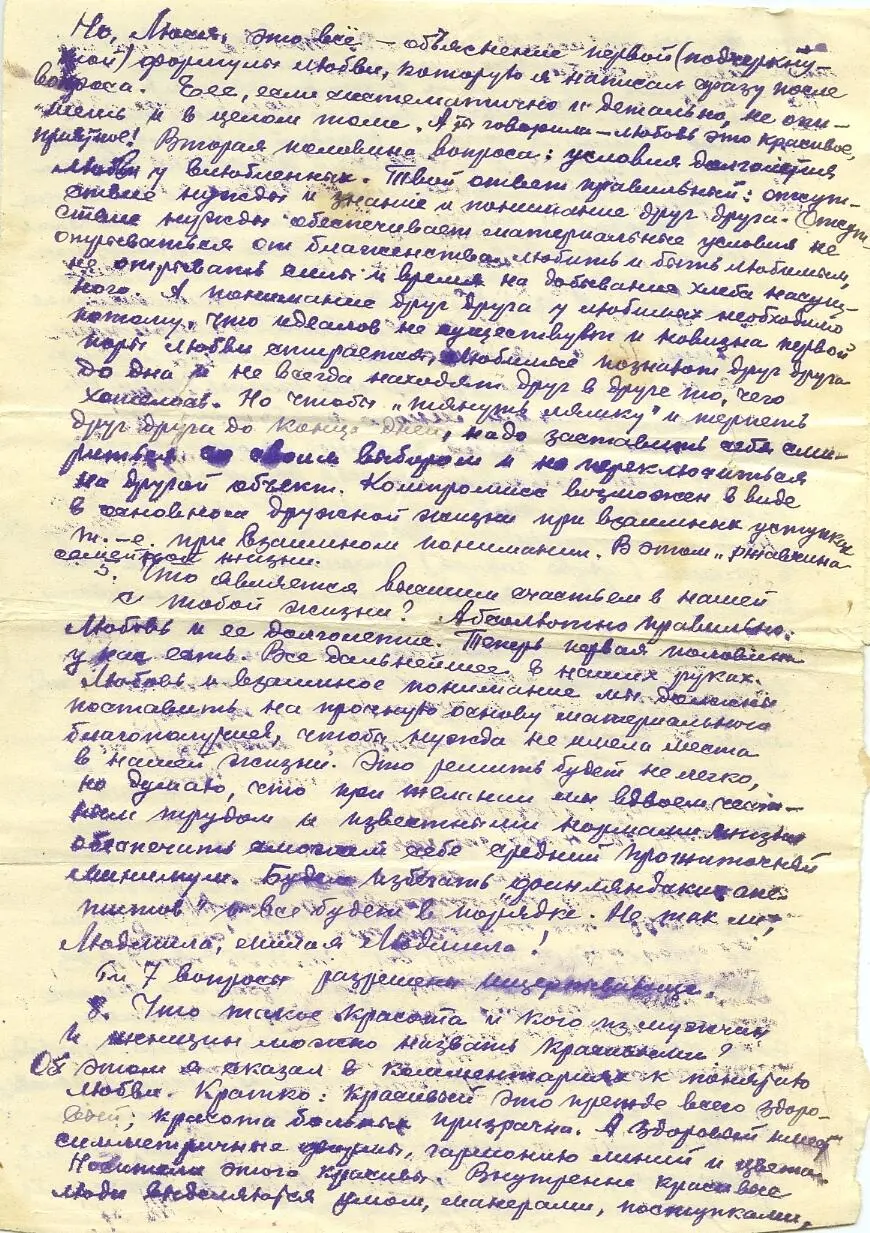 Но, Люся, это всё – объяснение первой (подчеркну-
той) формулы любви, которую я написал сразу после
вопроса. Её, если систематично и детально, не опи-
шешь и в целом томе. А ты говорила – любовь это красивое,
приятное! Вторая половина вопроса: условия долголетия
любви у влюбленных. Твой ответ правильный: отсут-
ствие нужды и знание и понимание друг друга. Отсут-
ствие нужды обеспечивает материальные условия не
отрываться от блаженства любить и быть любимым,
не отрывать силы и время на добывание хлеба насущ-
ного. А понимание друг друга у любимых необходимо
потому, что идеалов не существует и новизна первой
поры любви стирается, любимые познают друг друга
до дна и не всегда находят друг в друге то, чего
хотелось. Но чтобы „тянуть лямку" и терпеть
друг друга до конца дней, надо заставить себя сми-
риться со своим выбором и не переключиться
на другой объект. Компромисс возможен в виде
в основном дружной жизни при взаимных уступках
т.-е. при взаимном понимании. В этом „ржавчина
семейной жизни.
5. Что является высшим счастьем в нашей
с тобой жизни? Абсолютно правильно.
Любовь и ее долголетие. Теперь первая половина
у нас есть. Все дальнейшее в наших руках.
Любовь и взаимное понимание мы должны
поставить на прочную основу материального
благополучия, чтобы нужда не имела места
в нашей жизни. Это решить будет нелегко,
но думаю, что при желании мы вдвоем чест-
ным трудом и известными нормами жизни
обеспечить сможем себе средний прожиточный
минимум. Будем избегать „финляндских аппе-
титов" и все будет в порядке. Не так ли,
Людмила, милая Людмила!
7 вопросы разрешены
8. Что такое красота и кого из мужчин
и женщин можно назвать красивыми?
Об этом я сказал в комментариях к понятию
любви. Кратко: красивый это прежде всего здоро-
вый; красота больных призрачна. А здоровый имеет
симметричные формы, гармонию линий и цвета.
Носители этого красивы. Внутренне красивые
люди выделяются умом, манерами, поступками,